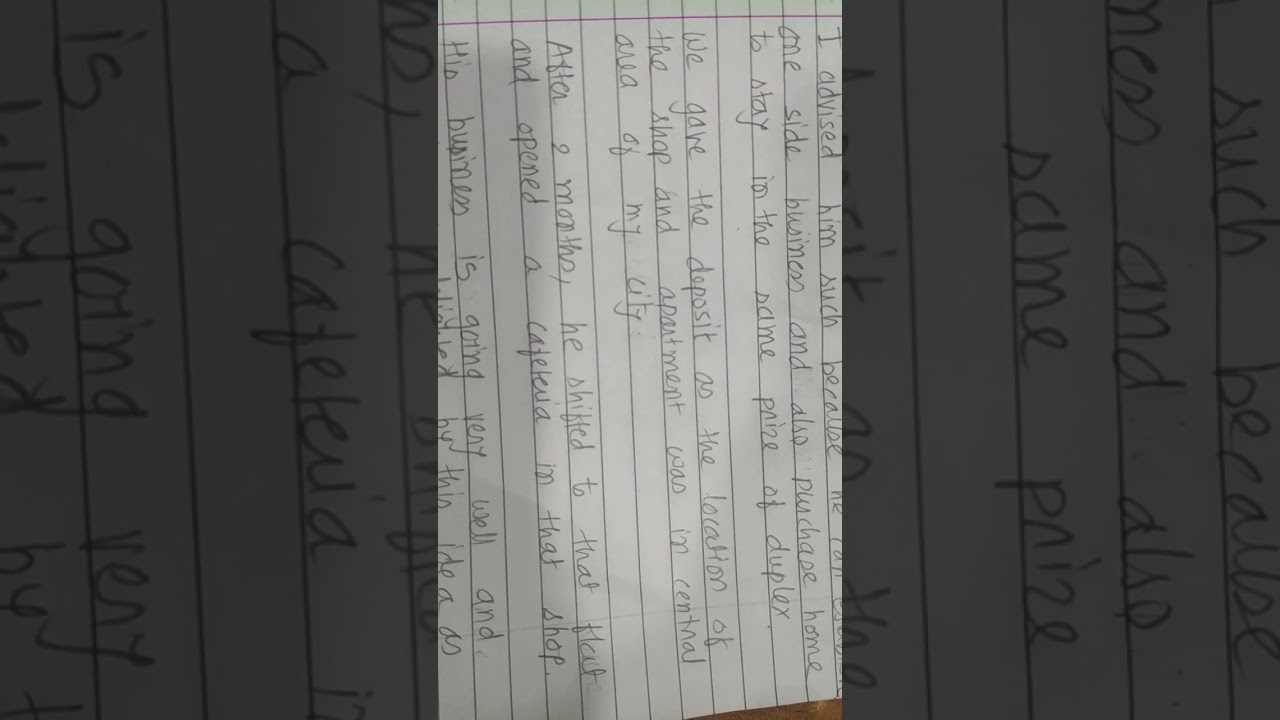 I advised him such because he can
one side business and also purchase home
to stay in the same prize of duplex.
We gave the deposit as the location of
the shop and apartment was in central
area of my city.
After 2 months, he shifted to that flat
and opened a cafeteria in that shop.
His business is going very well and
by this idea as